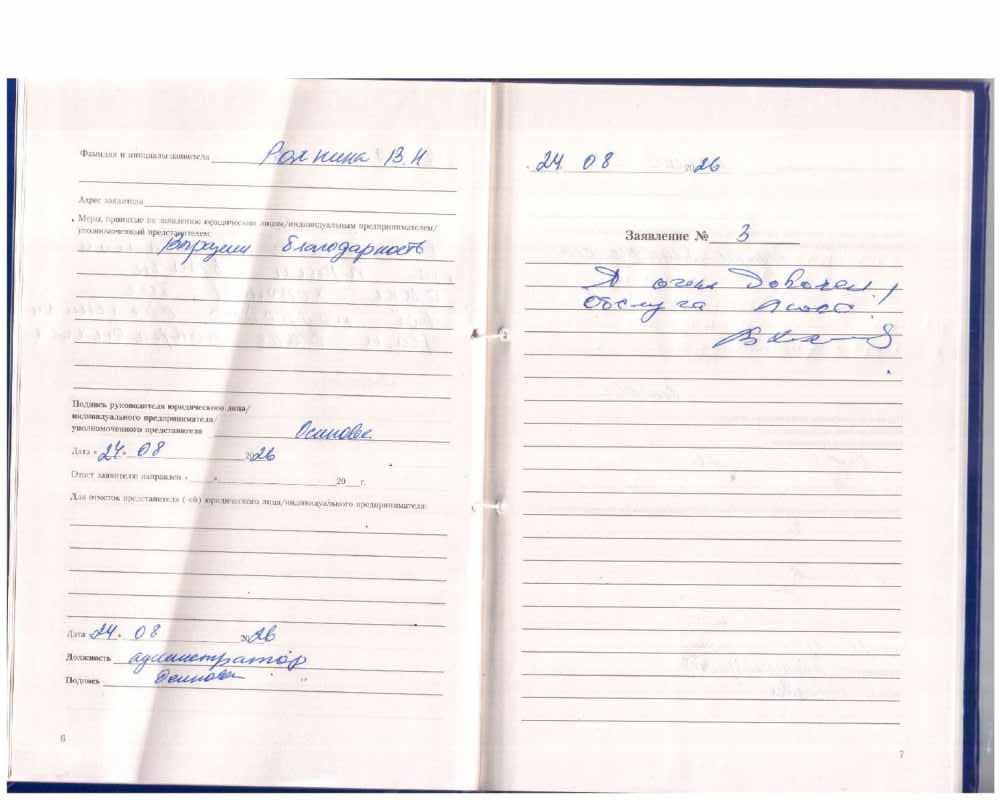 Фамилия и инициалы заявителя Рожнина В.Н
Адрес заявителя
Меры, принятые по заявлению юридическим лицом/индивидуальным предпринимателем/
уполномоченным представителем:
Выразили благодарность
Подпись руководителя юридического лица/
индивидуального предпринимателя/
уполномоченного представителя
Дата « 24. 08 2026
Ответ заявителю направлен « » 20 г.
Для отметок представителя (-ей) юридического лица/индивидуального предпринимателя:
Дата 24. 08 2026
Должность администратор
Подпись
6
24. 08 2026
Заявление № 3
Я очень доволен!
7